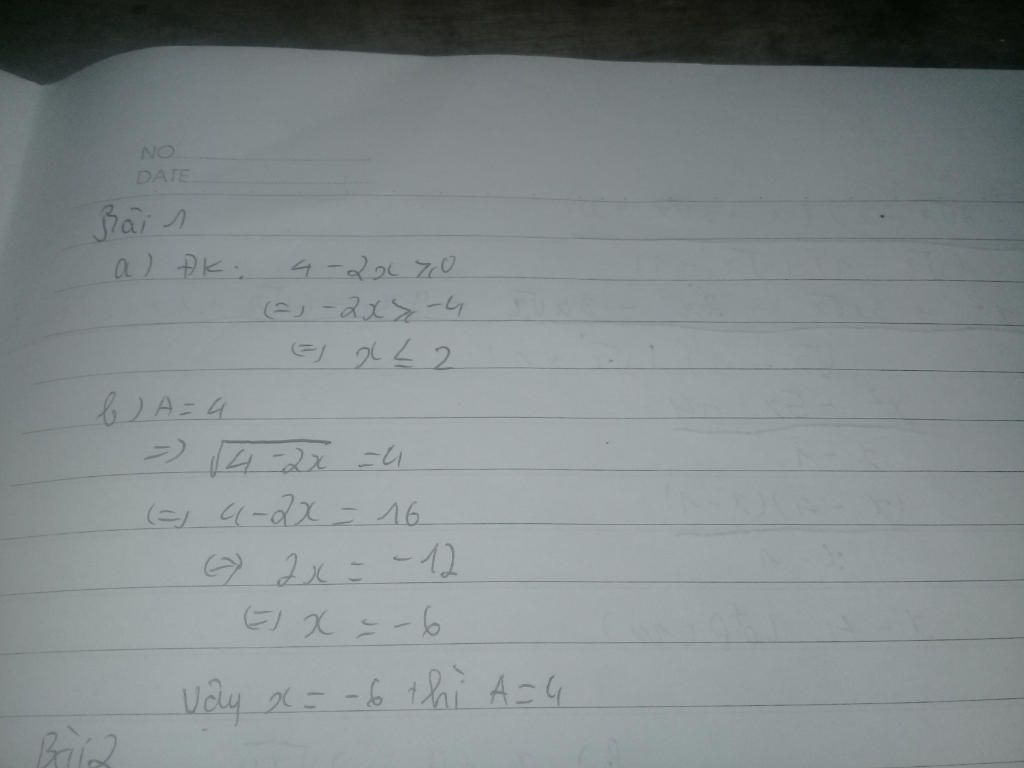 NO
DATE
Bài 1
a) ĐK: 4 - 2x ≥ 0
(=) -2x ≥ -4
(=) x ≤ 2
b) A = 4
=) √(4 - 2x) = 4
(=) 4 - 2x = 16
(=) 2x = -12
(=) x = -6
Vậy x = -6 thì A = 4
Bài 2